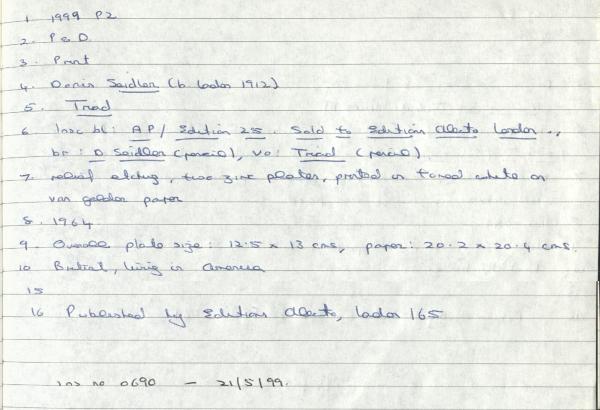 1 1999 P2
2. P & D
3. Print
4. Doris Seidler (b. London 1912)
5. Triad
6 Insc bl: AP/ Edition 25. Sold to Editions Alecto London..,
br: D Seidler (pencil), vo: Triad (pencil).
7. relief etching, two zinc plates, printed in toned white on
van gelder paper
8. 1964
9. Overall plate size: 12.5 x 13 cms, paper: 20.2 x 20.4 cms.
10 British, living in America
15
16 Published by Editions Alecto, London 165
ins no 0690 — 21/5/99.